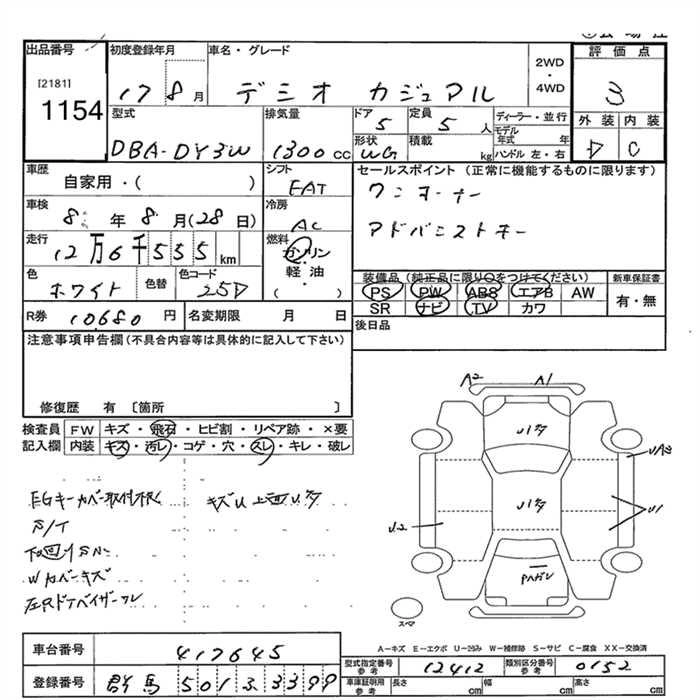 出品番号 初度登録年月 車名・グレード 2WD・4WD 評価点
[2181]
1154
17 8月 デミオ カジュアル 3
型式 排気量 ドア 定員 ディーラー・並行 外装 内装
DBA-DY3W 1300cc 5 5人 モデル年式 年 D C
形状 積載 kg ハンドル 左・右
WG
車歴 シフト セールスポイント (正常に機能するものに限ります)
自家用・( ) FAT ワンオーナー
車検 冷房
8年8月(28日) AC アドバンストキー
走行 燃料
12万6千555km ガソリン・軽油・( )
色 色替 色コード 装備品 (純正品に限り○をつけてください) 新車保証書
ホワイト 25D PS PW ABS エアB AW 有・無
SR ナビ TV カワ
R券 10,680円 名変期限 月 日 後日品
注意事項申告欄(不具合内容等は具体的に記入して下さい)
修復歴 有 〔箇所 〕
検査員記入欄 FW キズ・飛石・ヒビ割・リペア跡・×要
内装 キズ・汚レ・コゲ・穴・スレ・キレ・破レ
EGキーカバー取付
S/T
下回りSA
Wカバーキズ
A2 A1
U1
U2
スペア
A-キズ E-エクボ U-凹み W-補修跡 S-サビ C-腐食 XX-交換済
車台番号 417645 型式指定番号 参考 12412 類別区分番号 参考 0152
登録番号 群馬 501 3399 車庫証明用 参考 長さ cm 幅 cm 高さ cm